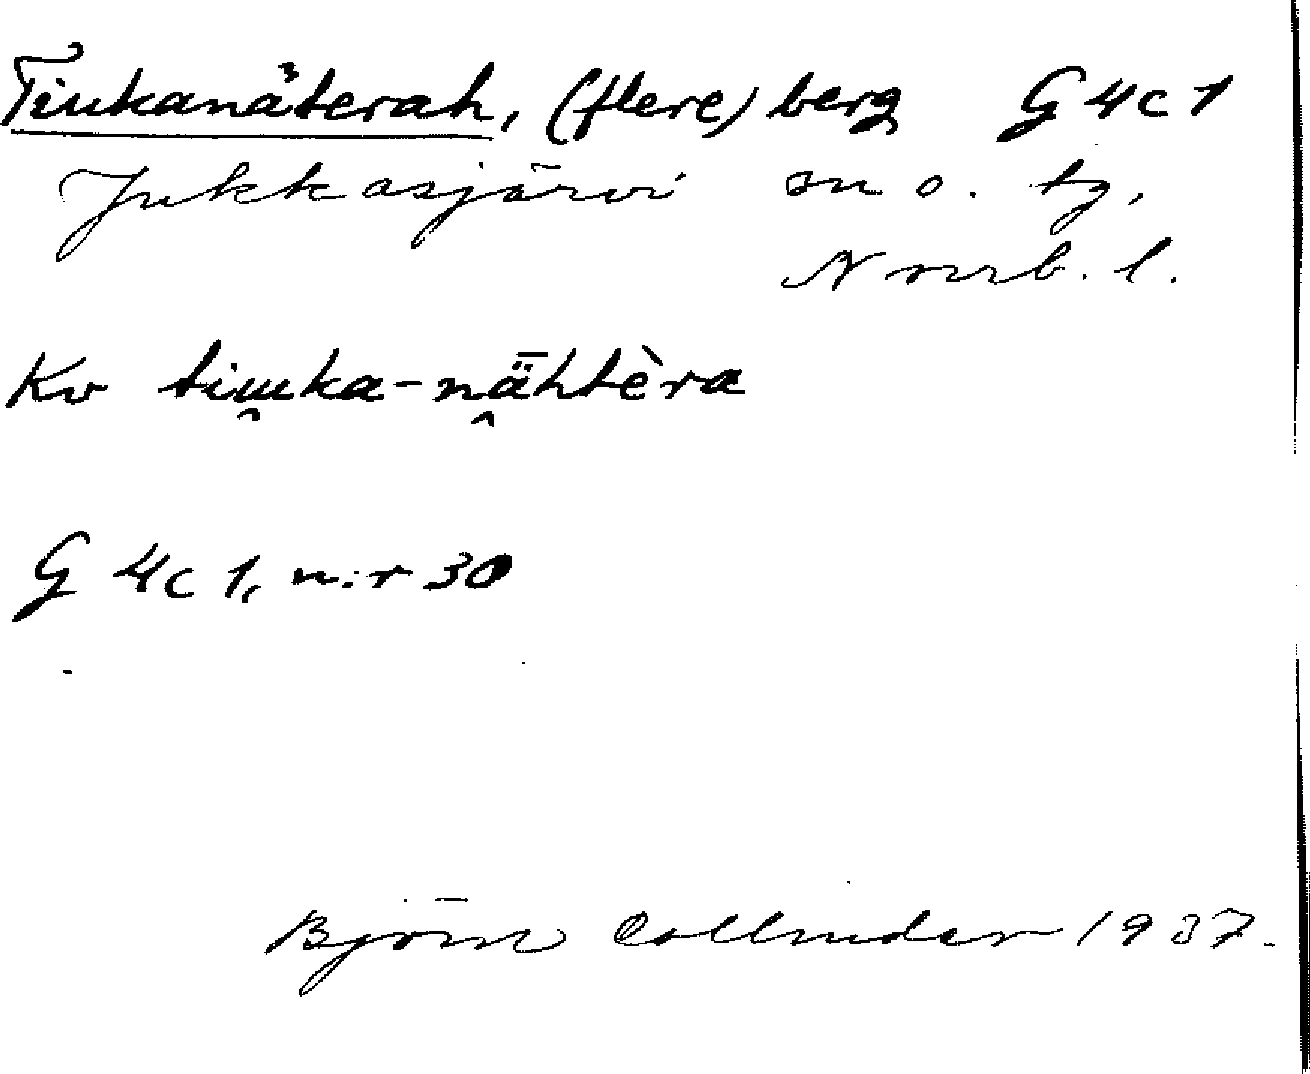 Tiukanäterah, (flere) berg G 4c 1
Jukkasjärvi sn o. tg,
Norrb. l.
Kv tiu̯ka-nǟhtèra
G 4c 1, n:r 30
Björn Collinder 1937.